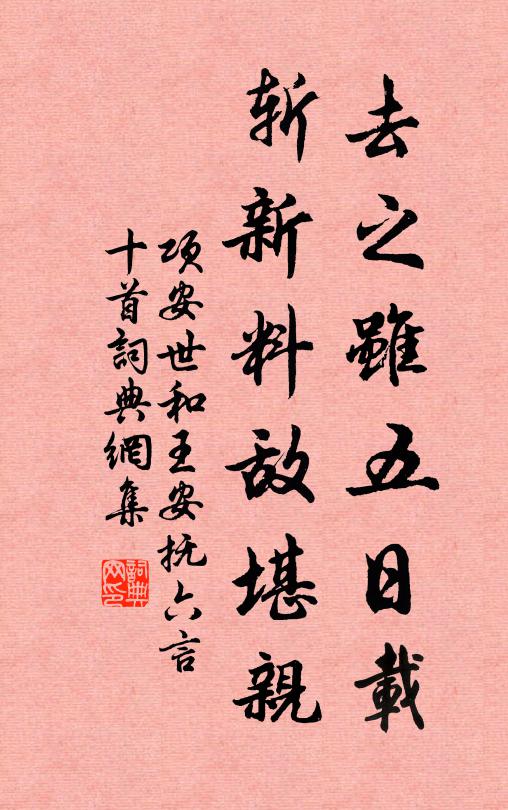 去之雖五日載
斬新料敵堪親
項安世和王安抚六言
十首詞典網集
詞典网印